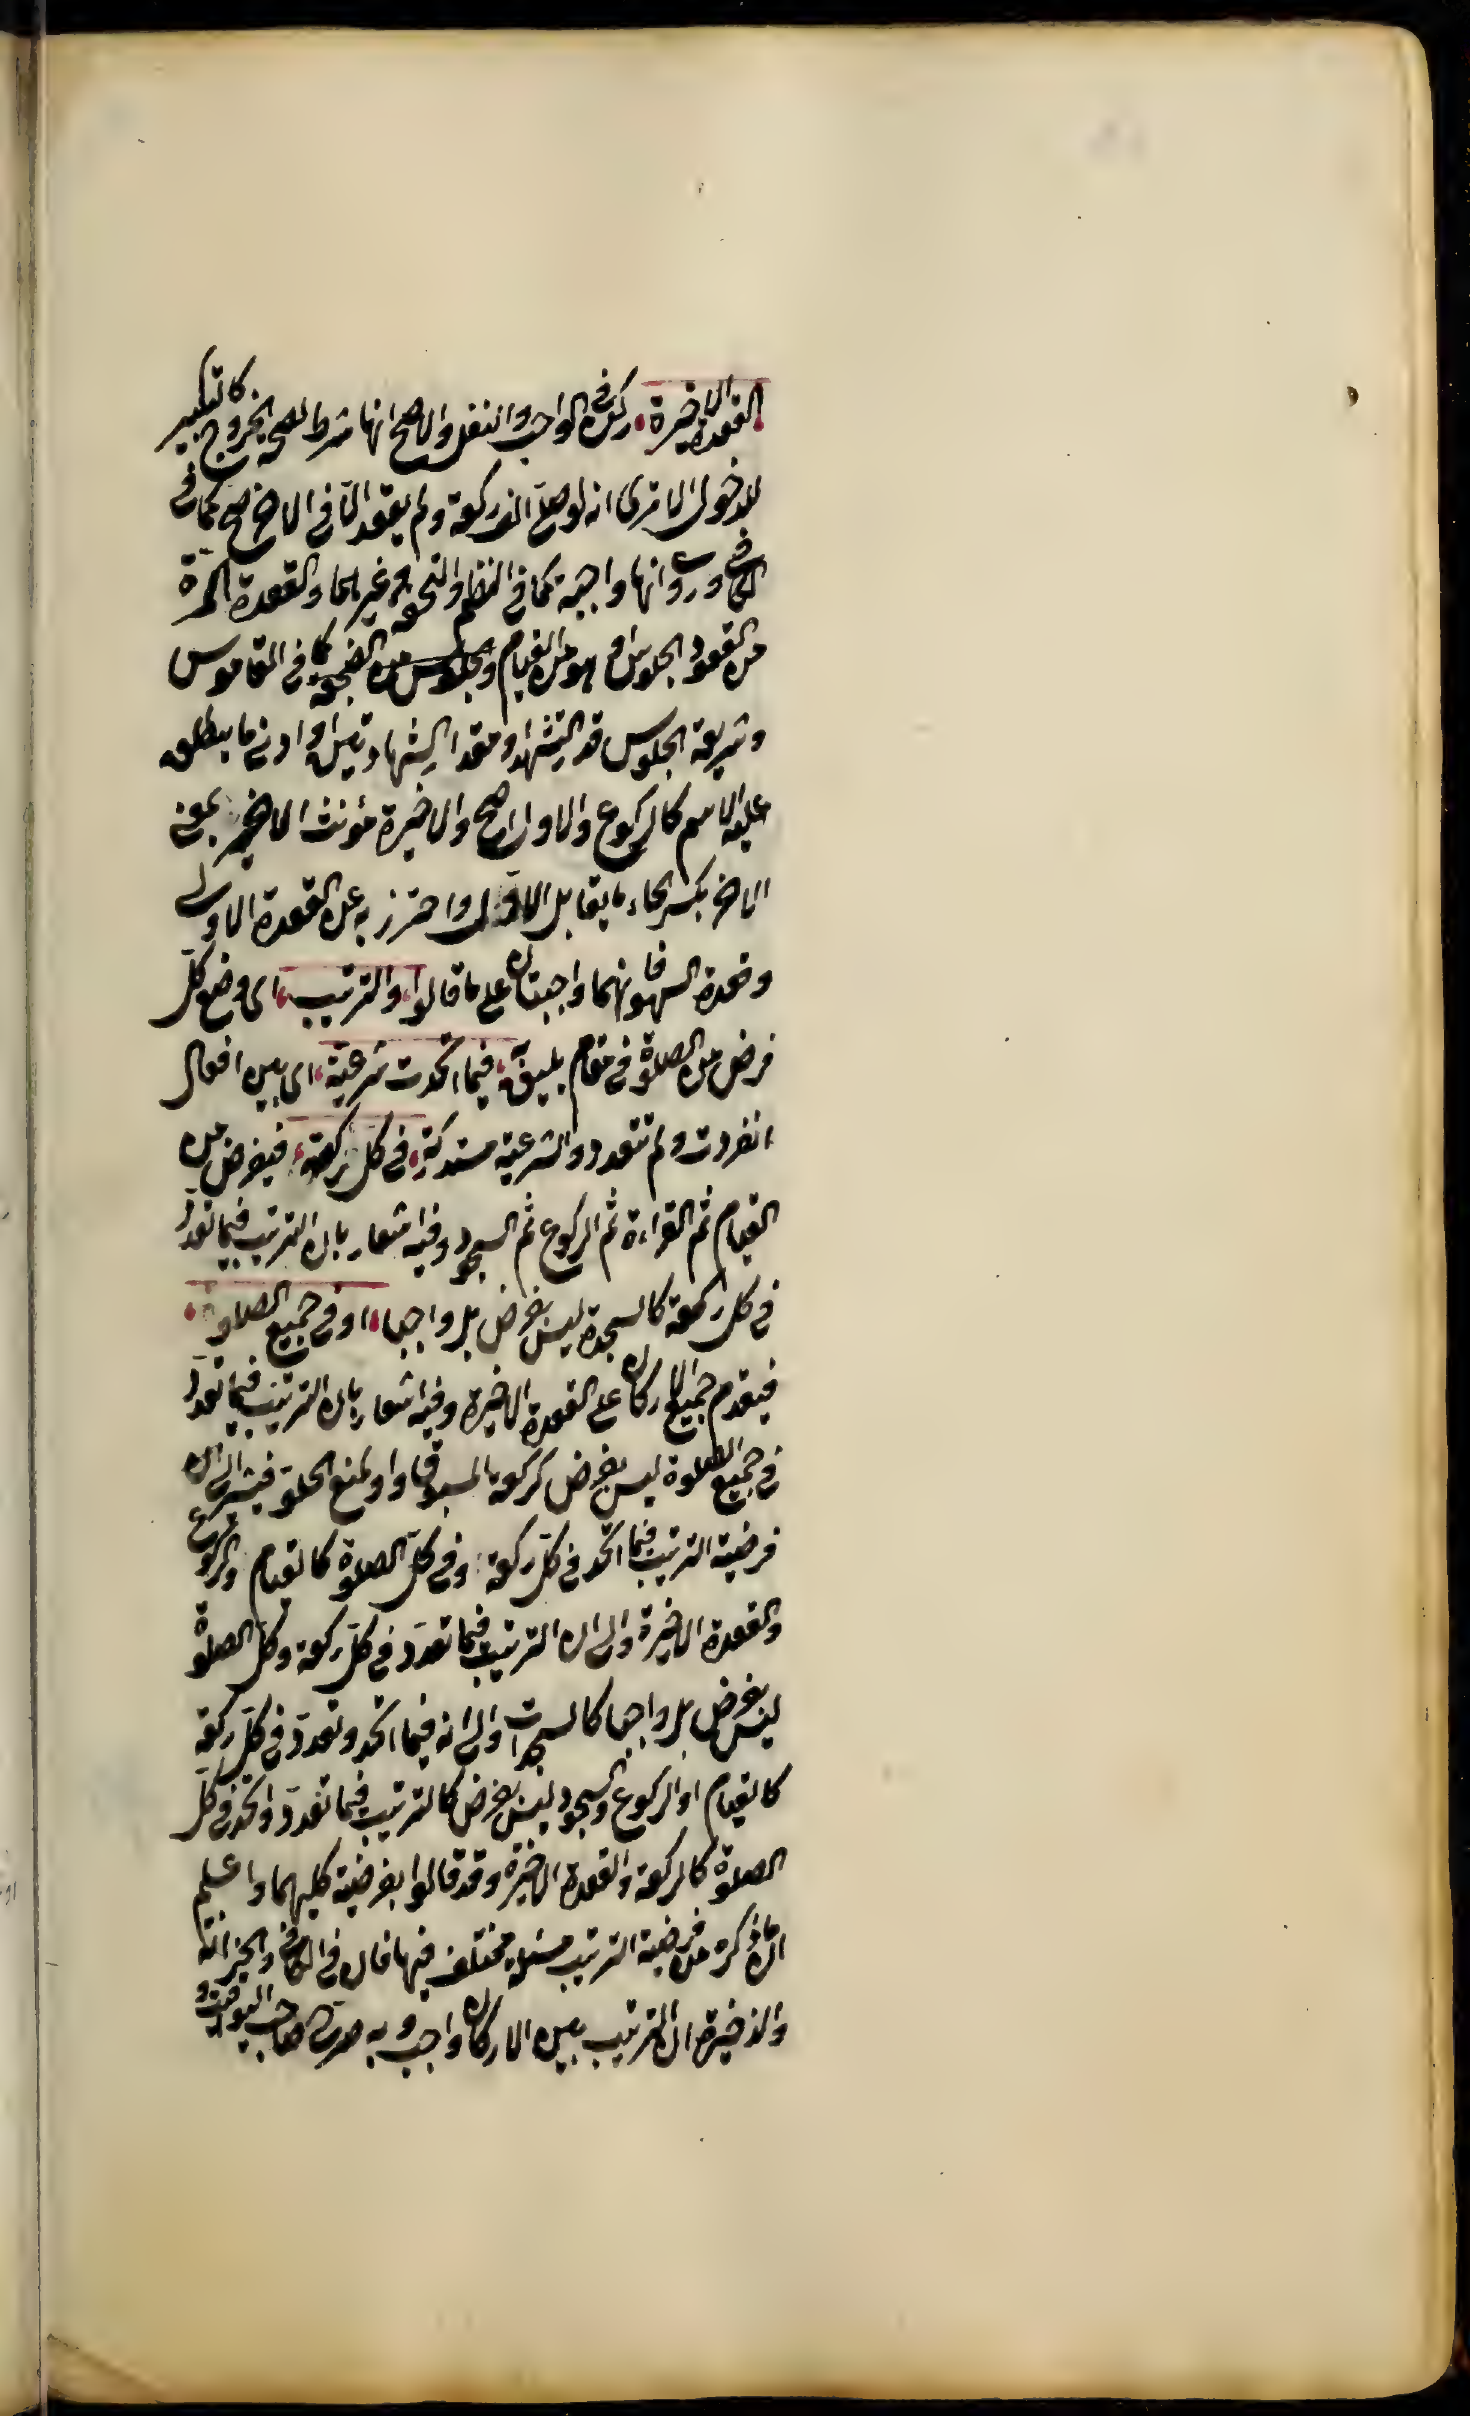 القعدة الاخيرة ركن فى الواجب والنفل والاصح انها شرط لصحة الخروج كالتكبير
للدخول الا ترى انه لو صلى الف ركعة ولم يقعد الا فى الاخر صح كما فى
وروى انها واجبة كما فى النظم والتحفة وغيرهما والقعدة المرة
من القعود الجلوس او هو من القيام والجلوس من الضجعة كما فى القاموس
وشريعة الجلوس قدر التشهد او مقدار الشهادتين او ادنى ما يطلق
عليه الاسم كالركوع والاول اصح والاخيرة مؤنث الاخير بمعنى
الاخر بكسر الخاء ما يقابل الاول واحترز به عن القعدة الاولى
وقعدة السهو فانهما واجبتان على ما قالوا والترتيب اى وضع كل
فرض من الصلوة فى مقام يليق به فيما اتحدت شرعيته اى بين افعال
انفردت ولم تتعدد والشرعية مستدركة فى كل ركعة فيفرض من
القيام ثم القراءة ثم الركوع ثم السجود وفيه اشعار بان الترتيب فيما تعدد
فى كل ركعة كالسجدة ليس بفرض بل واجبا او فى جميع الصلوة
فيقدم جميع الاركان على القعدة الاخيرة وفيه اشعار بان الترتيب فيما تعدد
فى جميع الصلوة ليس بفرض كركعة المسبوق واو لمنع الخلو فيشير الى ان
فرضية الترتيب فيما اتحد فى كل ركعة وفى كل الصلوة كالقيام والركوع
والقعدة الاخيرة والى ان الترتيب فيما تعدد فى كل ركعة وكل الصلوة
ليس بفرض بل واجبا كالسجدات والى انه فيما اتحد وتعدد فى كل ركعة
كالقيام او الركوع والسجود ليس بفرض كالترتيب فيما تعدد واتحد فى كل
الصلوة كالركعة والقعدة الاخيرة وقد قالوا بفرضية كليهما واعلم
ان ما ذكره من فرضية الترتيب مسئلة مختلف فيها قال فى الكافى والخزانة
والذخيرة ان الترتيب بين الاركان واجب وبه صرح صاحب